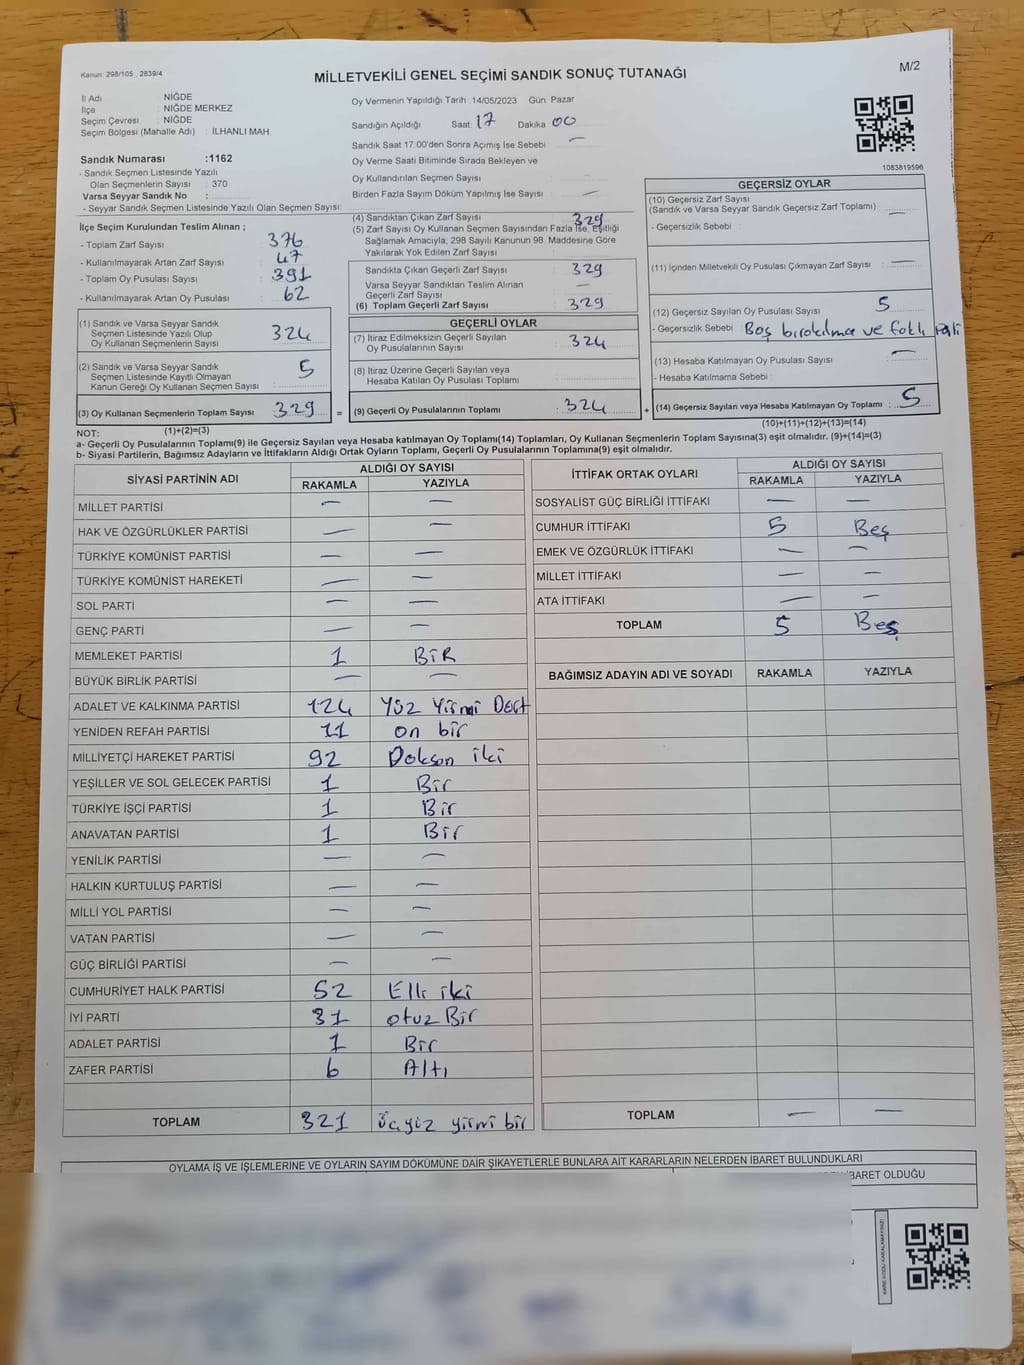 Kanun: 298/105 , 2839/4
MİLLETVEKİLİ GENEL SEÇİMİ SANDIK SONUÇ TUTANAĞI
M/2
İl Adı : NİĞDE
İlçe : NİĞDE MERKEZ
Seçim Çevresi : NİĞDE
Seçim Bölgesi (Mahalle Adı) : İLHANLI MAH.
Sandık Numarası :1162
- Sandık Seçmen Listesinde Yazılı
Olan Seçmenlerin Sayısı : 370
Varsa Seyyar Sandık No :
- Seyyar Sandık Seçmen Listesinde Yazılı Olan Seçmen Sayısı:
Oy Vermenin Yapıldığı Tarih :14/05/2023 Gün Pazar
Sandığın Açıldığı Saat: 17 Dakika 00
Sandık Saat 17:00'den Sonra Açımış İse Sebebi : —
Oy Verme Saati Bitiminde Sırada Bekleyen ve
Oy Kullandırılan Seçmen Sayısı :
Birden Fazla Sayım Döküm Yapılmış İse Sayısı : —
1083819596
İlçe Seçim Kurulundan Teslim Alınan ;
- Toplam Zarf Sayısı : 376
- Kullanılmayarak Artan Zarf Sayısı : 47
- Toplam Oy Pusulası Sayısı : 391
- Kullanılmayarak Artan Oy Pusulası : 62
(1) Sandık ve Varsa Seyyar Sandık
Seçmen Listesinde Yazılı Olup
Oy Kullanan Seçmenlerin Sayısı : 324
(2) Sandık ve Varsa Seyyar Sandık
Seçmen Listesinde Kayıtlı Olmayan
Kanun Gereği Oy Kullanan Seçmen Sayısı : 5
(3) Oy Kullanan Seçmenlerin Toplam Sayısı : 329 =
(1)+(2)=(3)
(4) Sandıktan Çıkan Zarf Sayısı : 329
(5) Zarf Sayısı Oy Kullanan Seçmen Sayısından Fazla İse, Eşitliği
Sağlamak Amacıyla, 298 Sayılı Kanunun 98. Maddesine Göre
Yakılarak Yok Edilen Zarf Sayısı :
Sandıkta Çıkan Geçerli Zarf Sayısı : 329
Varsa Seyyar Sandıktan Teslim Alınan
Geçerli Zarf Sayısı : —
(6) Toplam Geçerli Zarf Sayısı : 329
GEÇERLİ OYLAR
(7) İtiraz Edilmeksizin Geçerli Sayılan
Oy Pusulalarının Sayısı : 324
(8) İtiraz Üzerine Geçerli Sayılan veya
Hesaba Katılan Oy Pusulası Toplamı :
(9) Geçerli Oy Pusulalarının Toplamı : 324 +
GEÇERSİZ OYLAR
(10) Geçersiz Zarf Sayısı
(Sandık ve Varsa Seyyar Sandık Geçersiz Zarf Toplamı) : —
- Geçersizlik Sebebi :
(11) İçinden Milletvekili Oy Pusulası Çıkmayan Zarf Sayısı : —
(12) Geçersiz Sayılan Oy Pusulası Sayısı : 5
- Geçersizlik Sebebi : Boş bırakılma ve
(13) Hesaba Katılmayan Oy Pusulası Sayısı : —
- Hesaba Katılmama Sebebi :
(14) Geçersiz Sayılan veya Hesaba Katılmayan Oy Toplamı : 5
(10)+(11)+(12)+(13)=(14)
NOT:
a- Geçerli Oy Pusulalarının Toplamı(9) ile Geçersiz Sayılan veya Hesaba katılmayan Oy Toplamı(14) Toplamları, Oy Kullanan Seçmenlerin Toplam Sayısına(3) eşit olmalıdır. (9)+(14)=(3)
b- Siyasi Partilerin, Bağımsız Adayların ve İttifakların Aldığı Ortak Oyların Toplamı, Geçerli Oy Pusulalarının Toplamına(9) eşit olmalıdır.
SİYASİ PARTİNİN ADI ALDIĞI OY SAYISI
RAKAMLA YAZIYLA
MİLLET PARTİSİ — —
HAK VE ÖZGÜRLÜKLER PARTİSİ — —
TÜRKİYE KOMÜNİST PARTİSİ — —
TÜRKİYE KOMÜNİST HAREKETİ — —
SOL PARTİ — —
GENÇ PARTİ — —
MEMLEKET PARTİSİ 1 BİR
BÜYÜK BİRLİK PARTİSİ — —
ADALET VE KALKINMA PARTİSİ 124 Yüz Yirmi Dört
YENİDEN REFAH PARTİSİ 11 on bir
MİLLİYETÇİ HAREKET PARTİSİ 92 Doksan iki
YEŞİLLER VE SOL GELECEK PARTİSİ 1 Bir
TÜRKİYE İŞÇİ PARTİSİ 1 Bir
ANAVATAN PARTİSİ 1 Bir
YENİLİK PARTİSİ — —
HALKIN KURTULUŞ PARTİSİ — —
MİLLİ YOL PARTİSİ — —
VATAN PARTİSİ — —
GÜÇ BİRLİĞİ PARTİSİ — —
CUMHURİYET HALK PARTİSİ 52 Elli iki
İYİ PARTİ 31 otuz Bir
ADALET PARTİSİ 1 Bir
ZAFER PARTİSİ 6 Altı
TOPLAM 321 üçyüz yirmi bir
İTTİFAK ORTAK OYLARI ALDIĞI OY SAYISI
RAKAMLA YAZIYLA
SOSYALİST GÜÇ BİRLİĞİ İTTİFAKI — —
CUMHUR İTTİFAKI 5 Beş
EMEK VE ÖZGÜRLÜK İTTİFAKI — —
MİLLET İTTİFAKI — —
ATA İTTİFAKI — —
TOPLAM 5 Beş
BAĞIMSIZ ADAYIN ADI VE SOYADI RAKAMLA YAZIYLA
TOPLAM — —
OYLAMA İŞ VE İŞLEMLERİNE VE OYLARIN SAYIM DÖKÜMÜNE DAİR ŞİKAYETLERLE BUNLARA AİT KARARLARIN NELERDEN İBARET BULUNDUKLARI
İBARET OLDUĞU
KARE KODU KARALAMAYINIZ!